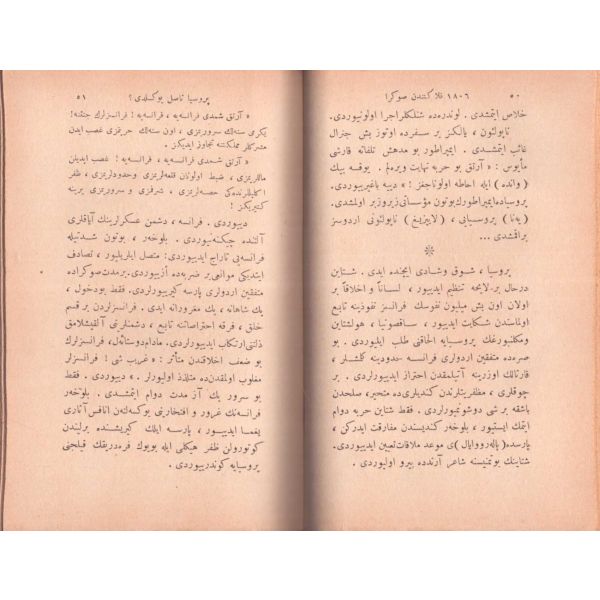 ٥٠
١٨٠٦ فلاكتندن صوكرا
خلاص ايتمشدى . لوندره‌ده شنلكلر اجرا اولونيوردى .
ناپولئون ، يالكز بر سفرده اوتوز بش جنرال
غائب ايتمشدى . ايمپراطور بو مدهش تلفاته قارشى
مأيوس : « آرتق بو حربه نهايت ويره‌لم . يوقسه بيك
( وانده ) ايله احاطه اولوناجغز ! » دييه باغيرييوردى .
پروسياده ايمپراطورك بوتون مؤسساتى زيروزبر اولمشدى .
( يه‌نا ) پروسيايى ، ( لايپزيغ ) ناپولئونى اردوسز
براقمشدى ...
*
پروسيا ، شوق وشادى ايچنده ايدى . شتاين
درحال بر لايحه تنظيم ايدييور ، لساناً و اخلاقاً بر
اولان اون بش مليون نفوسك فرانسز نفوذينه تابع
اولماسندن شكايت ايدييور ، ساقصونيا ، هولشتاين
ومكلنبورغك پروسيايه الحاقنى طلب ايلييوردى . بو
صره‌ده متفقين اردولرى فرانسه حدودينه كلمشلر ،
قارتالك اوزرينه آتيلمقدن احتراز ايدييورلردى .
چوقلرى ، مظفريتلرندن كنديلرى‌ده متحير ، صلحدن
باشقه بر شى دوشونميورلردى . فقط شتاين حربه دوام
ايتمك ايستيور ، بلوخه‌ر كنديسندن مفارقت ايدركن ،
پارسده ( پاله‌رووايال ) ى موعد ملاقات تعيين ايدييوردى .
شتاينك بو تمنيسنه شاعر آرندده پيرو اولييوردى .
پروسيا ناصل يوكسلدى ؟
٥١
« آرتق شمدى فرانسه‌يه ! فرانسه‌يه ! فرانسزلرك جننه !
يكرمى سنه‌لك سرورتزى ، اون سنه‌لك حريتمزى غصب ايدن
مشركلر مملكتنه تجاوز ايديكز .
« آرتق شمدى فرانسه‌يه ، فرانسه‌يه ! غصب ايديلن
ماللريمزى ، ضبط اولونان قلعه‌لريمزى وحدودلريمزى ، ظفر
اكليللرنده‌كى حصه‌لرمزى ، شرفمزى و سرورتمزى يرينه
كتيريكز ! »
دييوردى . فرانسه ، دشمن عسكرلرينك آياقلرى
آلتنده چيكنه‌نيوردى . بلوخه‌ر ، بوتون شدتيله
فرانسه‌يى تاراج ايدييوردى . متصل ايلريلييور ، تصادف
ايتديكى موانعى بر ضربه‌ده ازييوردى . بر مدت صوكراده
متفقين اردولرى پارسه كيرييورلردى . فقط بو دخول ،
پك شاهانه ، پك مغرورانه ايدى . فرانسزلردن بر قسم
خلق ، فرقه احتراصاتنه تابع ، دشمنلرينى آلقيشلامق
ذلتنى ارتكاب ايدييورلردى . مادام دوستائل ، فرانسزلرك
بو ضعف اخلاقندن متأثر : « غريب شى ! فرانسزلر
مغلوب اولمقدن‌ده متلذذ اولييورلر . » دييوردى . فقط
بو سرور پك آز مدت دوام ايتمشدى . بلوخه‌ر
فرانسه‌نك غرور و افتخارينى يوكسه‌لتن انافس آثارى
يغما ايدييور ، پارسه ايلك كيريشنده برليندن
كوتورولن ظفر هيكلى ايله بويوك فره‌دريقك قيليجنى
پروسيايه كوندرييوردى .